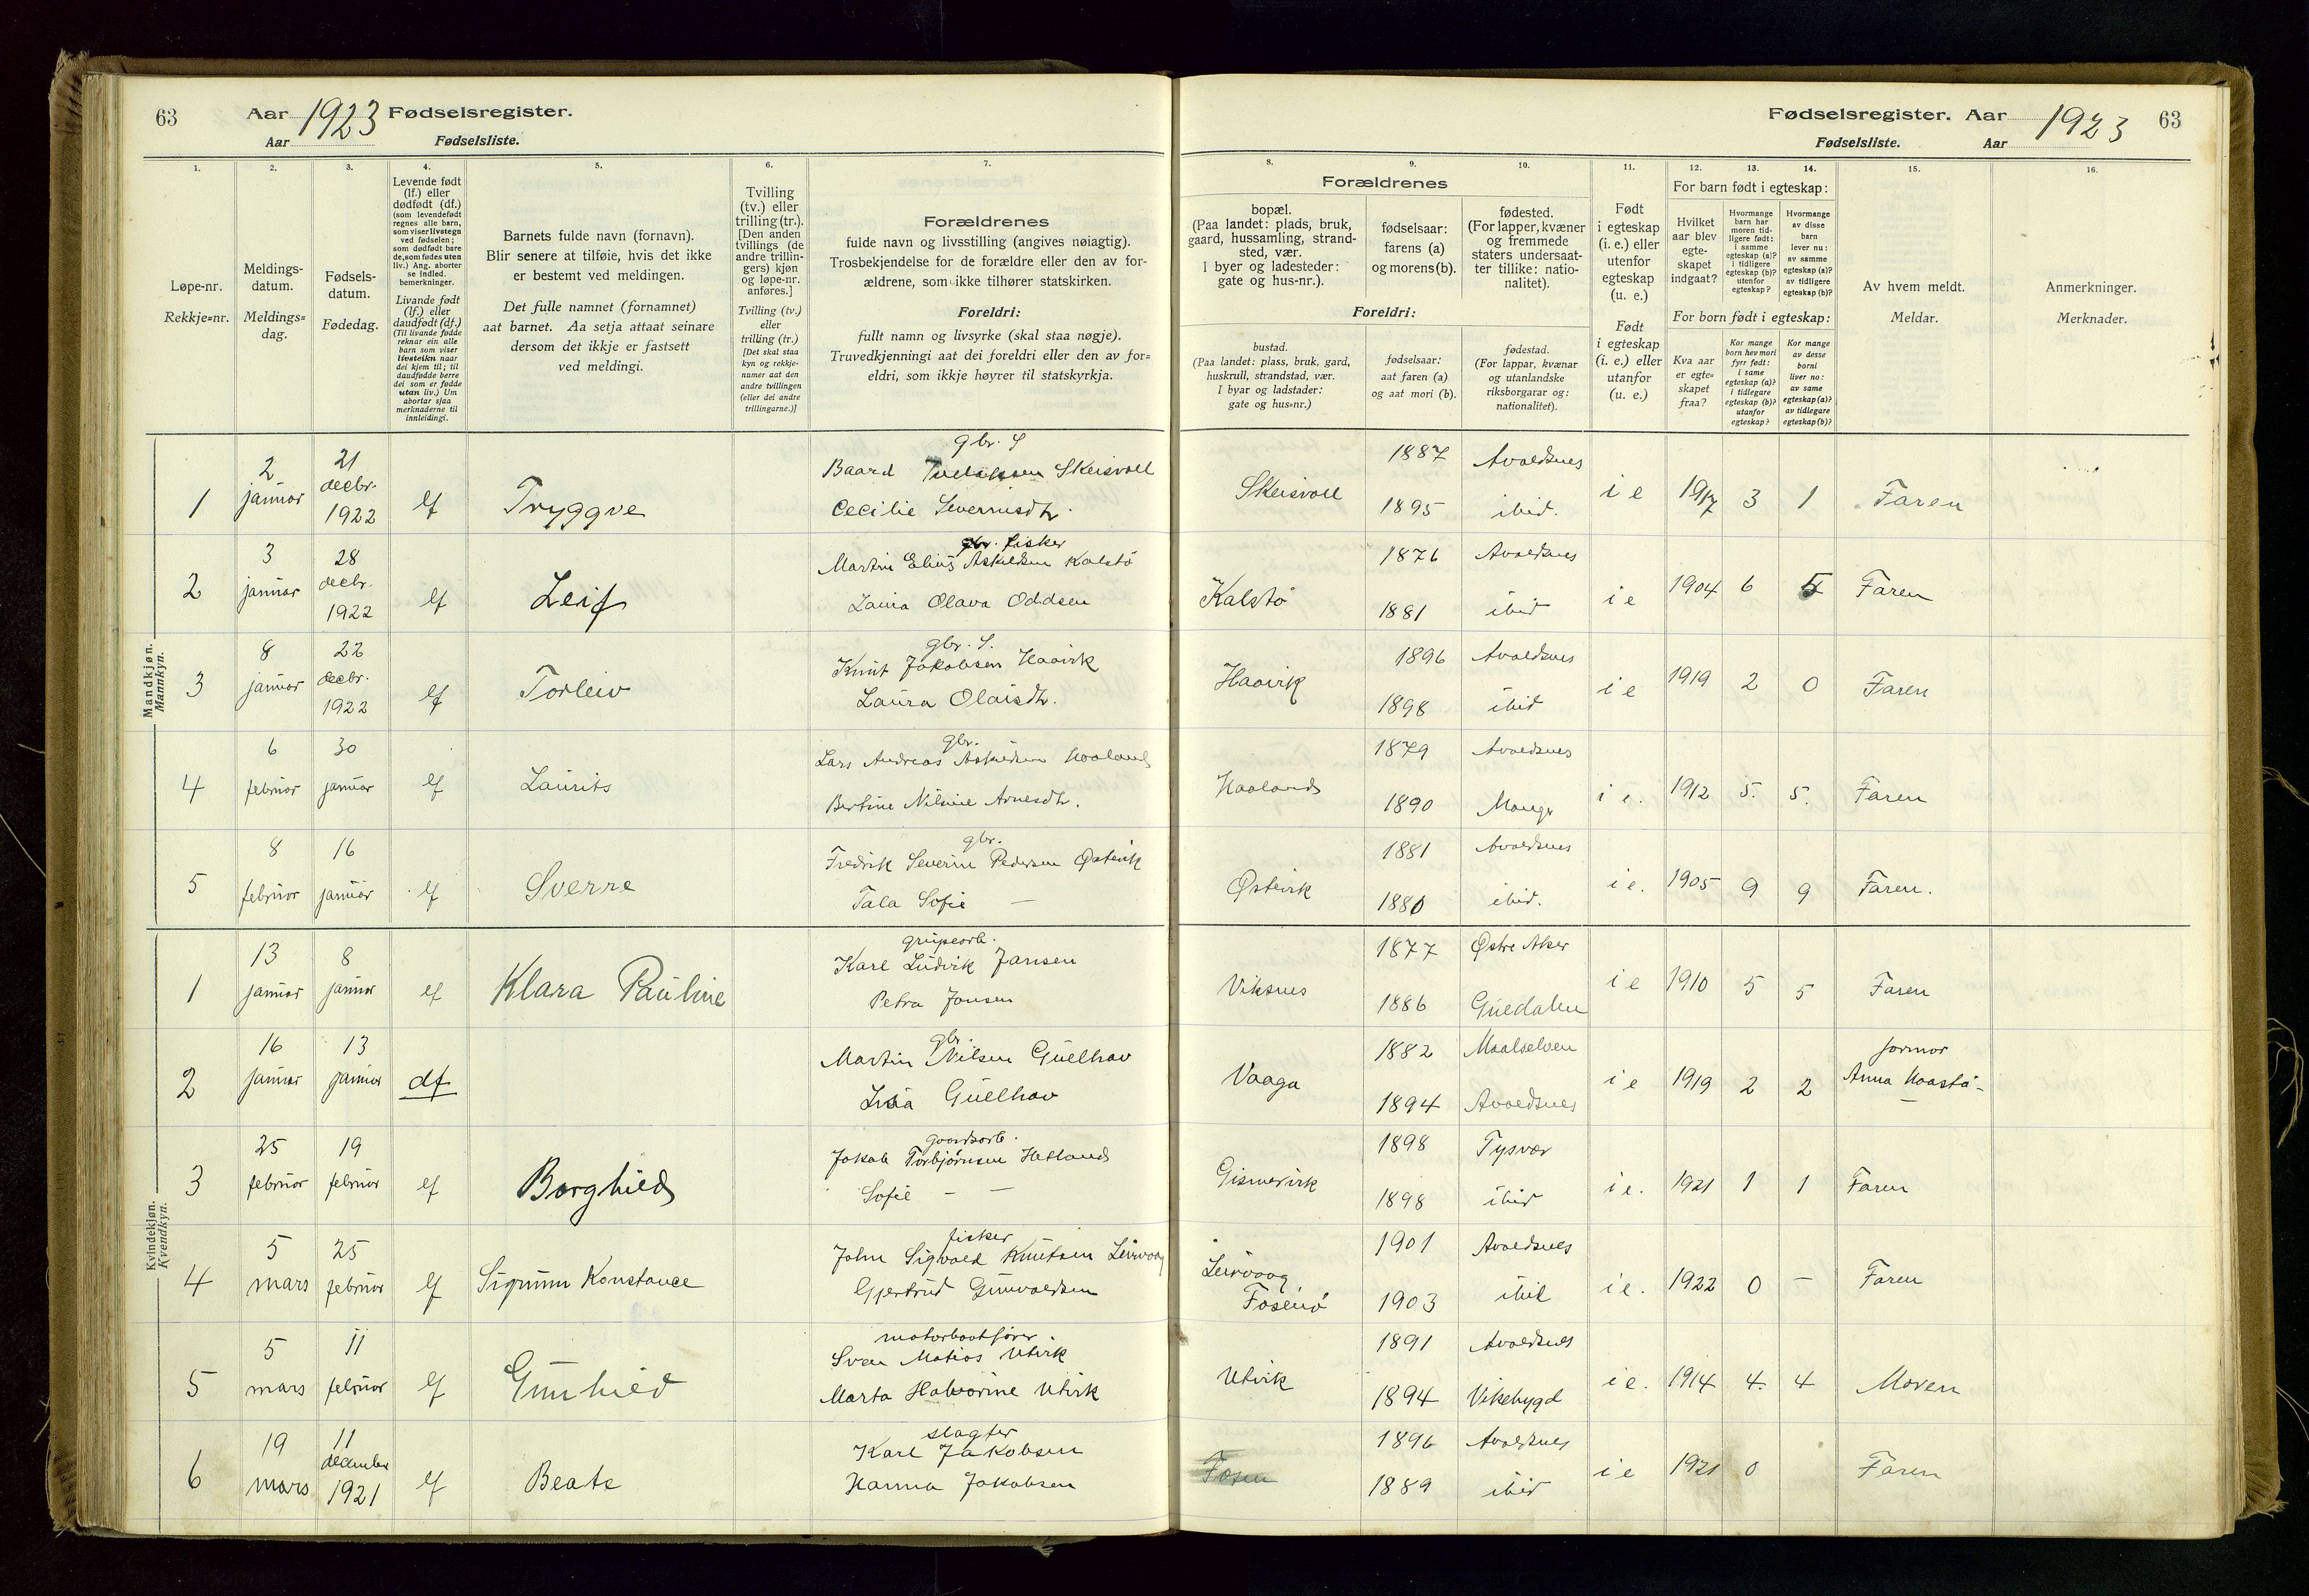 63 Aar 1923 Fødselsregister.
Aar Fødselsliste.
1. 2. 3. 4. 5. 6. 7.
Løpe-nr.
Rekkje=nr.
Meldings-
datum.
Meldings=
dag.
Fødsels-
datum.
Fødedag.
Levende født
(lf.) eller
dødfødt (df.)
(som levendefødt
regnes alle barn,
som viser livstegn
ved fødselen;
som dødfødt bare
de, som fødes uten
liv.) Ang. aborter
se indled.
bemerkninger.
Livande født
(lf.) eller
daudfødt (df.)
(Til livande fødde
reknar ein alle
barn som viser
livsteikn naar
dei kjem til; til
daudfødde berre
dei som er fødde
utan liv.) Um
abortar sjaa
merknaderne til
innleidingi.
Barnets fulde navn (fornavn).
Blir senere at tilføie, hvis det ikke
er bestemt ved meldingen.
Det fulle namnet (fornamnet)
aat barnet. Aa setja attaat seinare
dersom det ikkje er fastsett
ved meldingi.
Tvilling
(tv.) eller
trilling (tr.).
[Den anden
tvillings (de
andre trillin-
gers) kjøn
og løpe-nr.
anføres.]
Tvilling (tv.)
eller
trilling (tr.)
[Det skal staa
kyn og rekkje-
numer aat den
andre tvillingen
(eller dei andre
trillingarne.)]
Forældrenes
fulde navn og livsstilling (angives nøiagtig).
Trosbekjendelse for de forældre eller den av for-
ældrene, som ikke tilhører statskirken.
Foreldri:
fullt namn og livsyrke (skal staa nøgje).
Truvedkjenningi aat dei foreldri eller den av for=
eldri, som ikkje høyrer til statskyrkja.
Mandkjøn.
Mannkyn.
1 2 januar 21 decbr. 1922 lf Tryggve
gbr. S
Baard Skeisvoll
Cecilie Severinsdtr.
2 3 januar 28 decbr. 1922 lf Leif
gbr. fisker
Martin Elius Askildsen Kalstö
Laura Olava Oddsen
3 8 januar 22 decbr. 1922 lf Torleiv
gbr. S.
Knut Jakobsen Haavik
Laura Olaisdtr.
4 6 februar 30 januar lf Laurits
gbr.
Lars Andreas Askildsen Haaland
Bertine Nilsine Arnesdtr.
5 8 februar 16 januar lf Sverre
gbr.
Fredrik Severin Pedersen Østevik
Tala Sofie —
Kvindekjøn.
Kvendkyn.
1 13 januar 8 januar lf Klara Pauline
grubearb.
Karl Ludvik Jansen
Petra Jansen
2 16 januar 13 januar df
gbr.
Martin Nilsen Gullhav
Gullhav
3 25 februar 19 februar lf Borghild
gaardsarb.
Jakob Torbjørnsen Hetland
Sofie — —
4 5 mars 25 februar lf Sigrunn Konstance
fisker
John Sigvald Knutsen Leirvaag
Gjertrud Gunvaldsen
5 5 mars 11 februar lf Gunhild
motorbaatfører.
Sven Matias Utvik
Marta Halvorine Utvik
6 19 mars 11 december 1921 lf Beate
slagter
Karl Jakobsen
Hanna Jakobsen
Fødselsregister. Aar 1923 63
Fødselsliste. Aar
8. 9. 10. 11. 12. 13. 14. 15. 16.
Forældrenes
bopæl.
(Paa landet: plads, bruk,
gaard, hussamling, strand-
sted, vær.
I byer og ladesteder:
gate og hus-nr.).
fødselsaar:
farens (a)
og morens (b).
fødested.
(For lapper, kvæner
og fremmede
staters undersaat-
ter tillike: natio-
nalitet).
Foreldri:
bustad.
(Paa landet: plass, bruk, gard,
huskrull, strandstad, vær.
I byar og ladstader:
gate og hus=nr.)
fødselsaar:
aat faren (a)
og aat mori (b).
fødestad.
(For lappar, kvænar
og utanlandske
riksborgarar og:
nationalitet).
Født
i egteskap
(i. e.) eller
utenfor
egteskap
(u. e.)
Født
i egteskap
(i. e.) eller
utanfor
(u. e.)
For barn født i egteskap:
Hvilket
aar blev
egte-
skapet
indgaat?
Hvormange
barn har
moren tid-
ligere født:
i samme
egteskap (a)?
i tidligere
egteskap (b)?
utenfor
egteskap?
Hvormange
av disse
barn
lever nu:
av samme
egteskap (a)?
av tidligere
egteskap (b)?
For born født i egteskap:
Kva aar
er egte=
skapet
fraa?
Kor mange
born hev mori
fyrr født:
i same
egteskap (a)?
i tidlegare
egteskap (b)?
utanfor
egteskap?
Kor mange
av desse
borni
liver no:
av same
egteskap (a)?
av tidlegare
egteskap (b)?
Av hvem meldt.
Meldar.
Anmerkninger.
Merknader.
Skeisvoll 1887 Avaldsnes 1895 ibid. i e 1917 3 1 Faren
Kalstö 1876 Avaldsnes 1881 ibid i e 1904 6 Faren
Haavik 1896 Avaldsnes 1898 ibid i e 1919 2 0 Faren
Haaland 1879 Avaldsnes 1890 Mauger i e. 1912 5. 5. Faren
Østevik 1881 Avaldsnes 1880 ibid. i e. 1905 9 9 Faren.
Viksnes 1877 Østre Aker 1886 Guedalen i e 1910 5 5 Faren
Vaaga 1882 Maalselven 1894 Avaldsnes i e 1919 2 2 formor Anna
Gismervik 1898 Tysvær 1898 ibid i e. 1921 1 1 Faren
Leirvaag Fosenö 1901 Avaldsnes 1903 ibid i e. 1922 0 — Faren
Utvik 1891 Avaldsnes 1894 Vikebygd i e. 1914 4. 4 Moren
Fosen 1896 Avaldsnes 1889 ibid i e 1921 0 Faren